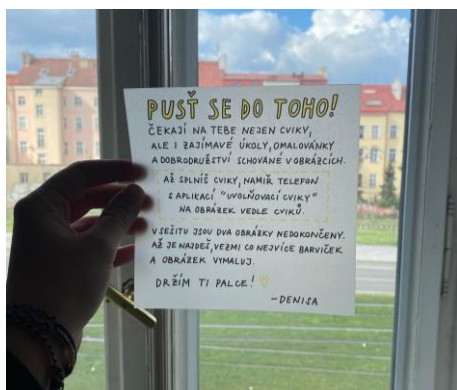 PUSŤ SE DO TOHO!
ČEKAJÍ NA TEBE NEJEN CVIKY,
ALE I ZAJÍMAVÉ ÚKOLY, OMALOVÁNKY
A DOBRODRUŽSTVÍ SCHOVANÉ V OBRÁZCÍCH.
AŽ SPLNÍŠ CVIKY, NAMIŘ TELEFON
S APLIKACÍ "UVOLŇOVACÍ CVIKY"
NA OBRÁZEK VEDLE CVIKŮ.
V SEŠITU JSOU DVA OBRÁZKY NEDOKONČENY.
AŽ JE NAJDEŠ, VEZMI CO NEJVÍCE BARVIČEK
A OBRÁZEK VYMALUJ.
DRŽÍM TI PALCE!
-DENISA